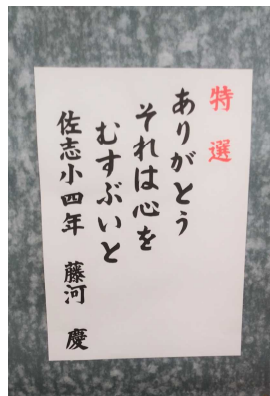 特選
ありがとう
それは心を
むすぶいと
佐志小四年 藤河 慶